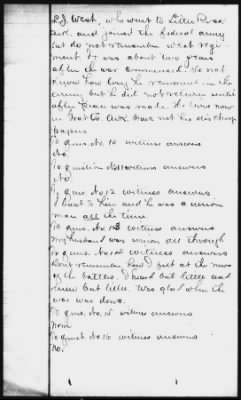 L.J. West, who went to Little Rock
Ark. and joined the federal army
but do not remember what regi-
ment. It was about two years
after the war commenced. Do not
know how long he remained in the
army but he did not return until
after peace was made. He lives now
in Co. Ark. Have not his discharge
papers
To ques. No. 10 witness answers
No.
To question No. 11 witness answers
No.
To ques. No. 12 witness answers
I and he was a union
man all the time.
To ques. No. 13 witness answers
My husband was union all through
To ques. No. witness answers
don't remember how I felt at the news
of the battles. I heard but little and
knew but little. Was glad when the
war was done.
To ques. No. 15 witness answers
None
To quest No 16 witness answers
No.